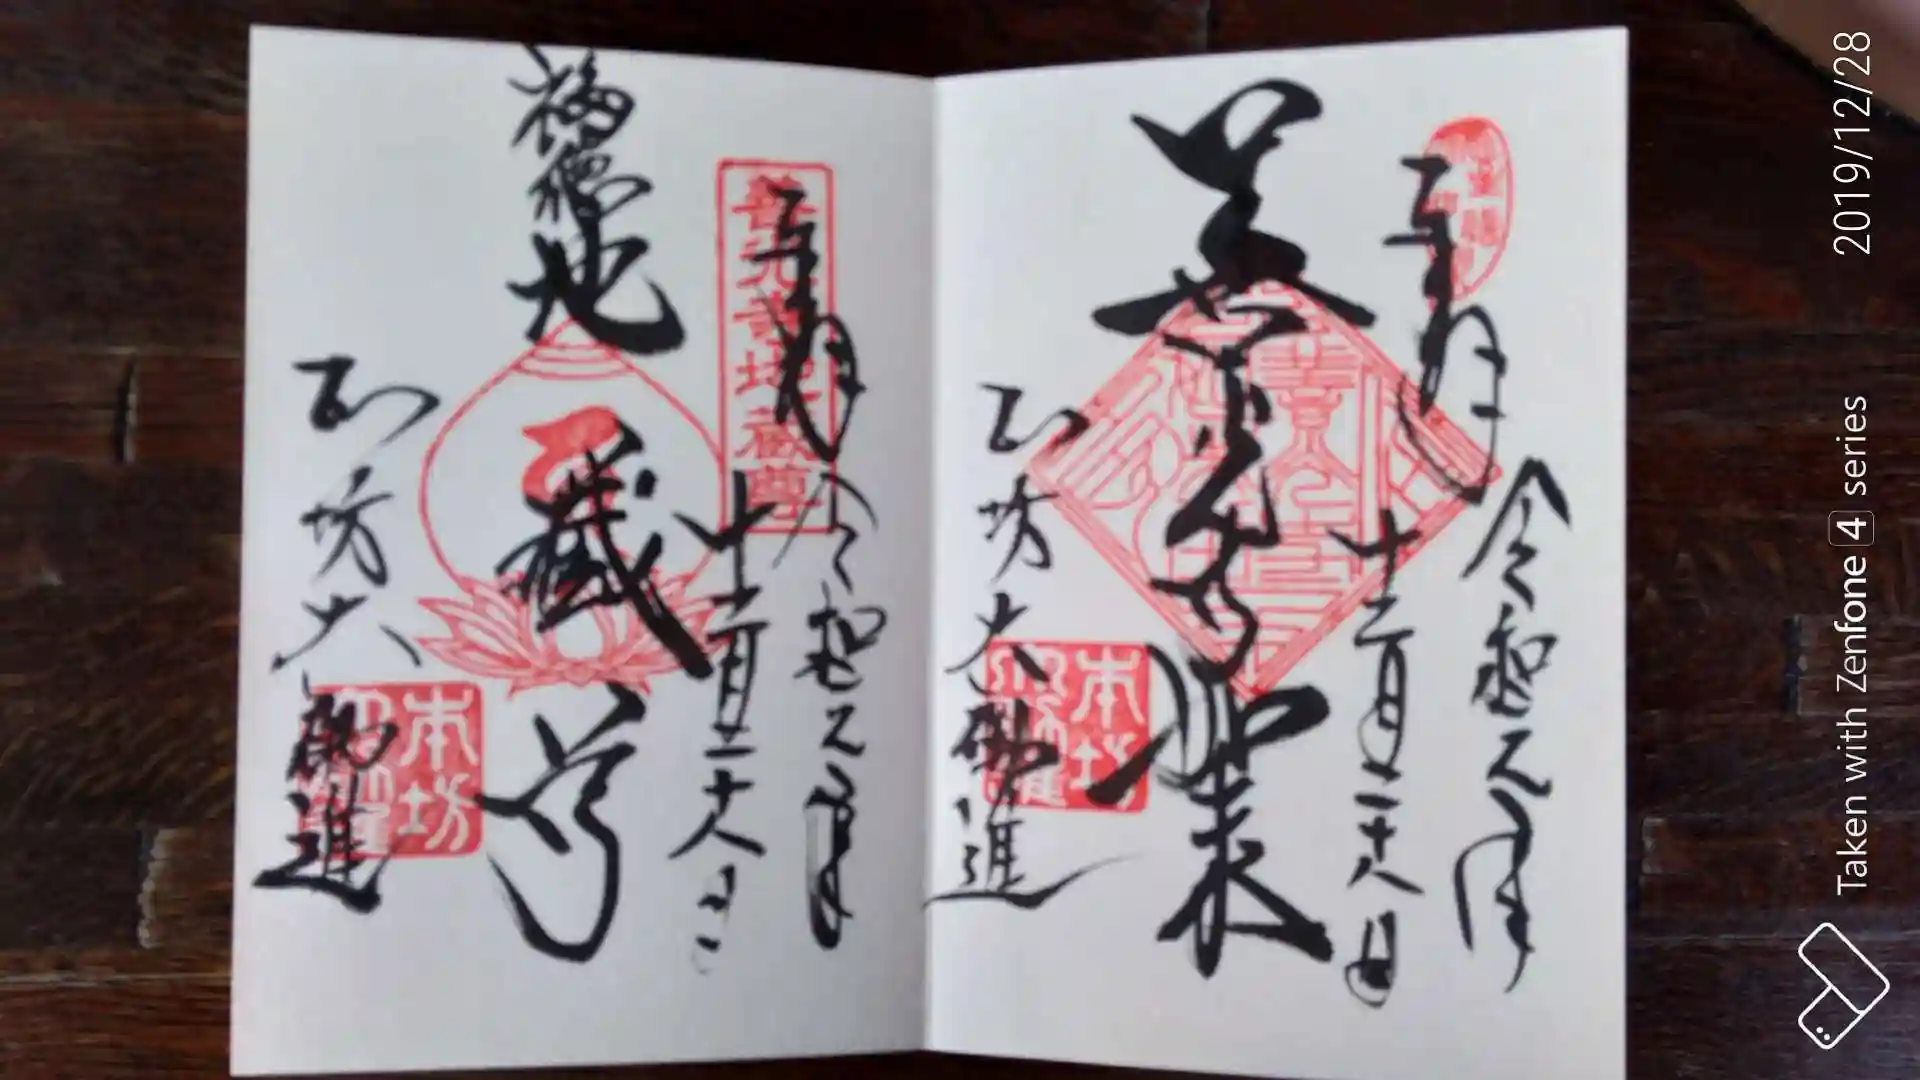 奉拝
令和元年
十二月二十八日
如来
本坊大勧進
本坊
奉拝
令和元年
十二月二十八日
善光寺地蔵尊
福徳地蔵尊
本坊大勧進
本坊
Taken with Zenfone 4 series 2019/12/28